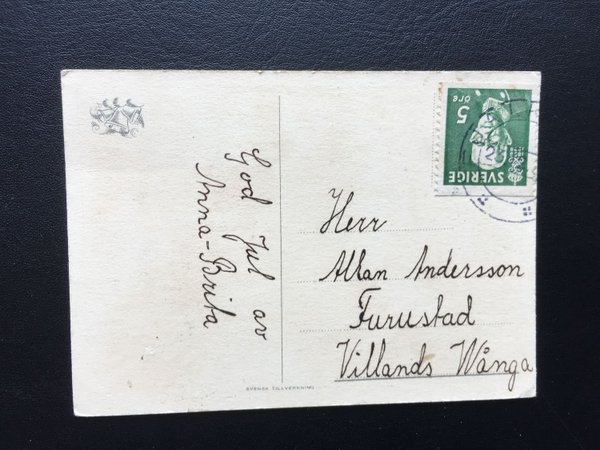 God Jul av
Anna-Brita
5 öre
SVERIGE
Herr
Allan Andersson
Furustad
Villands Wånga
SVENSK TILLVERKNING